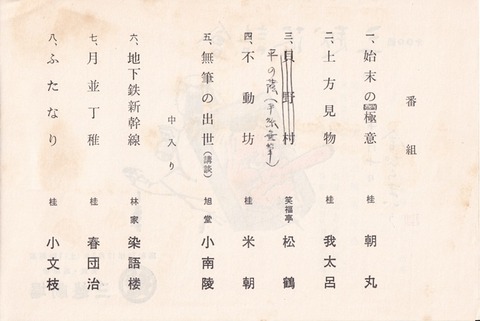 番組
一、始末の極意 桂 朝丸
二、上方見物 桂 我太呂
三、貝野村 笑福亭 松鶴
平の蔭
四、不動坊 桂 米朝
五、無筆の出世(講談) 旭堂 小南陵
中入り
六、地下鉄新幹線 林家 染語楼
七、月並丁稚 桂 春団治
八、ふたなり 桂 小文枝